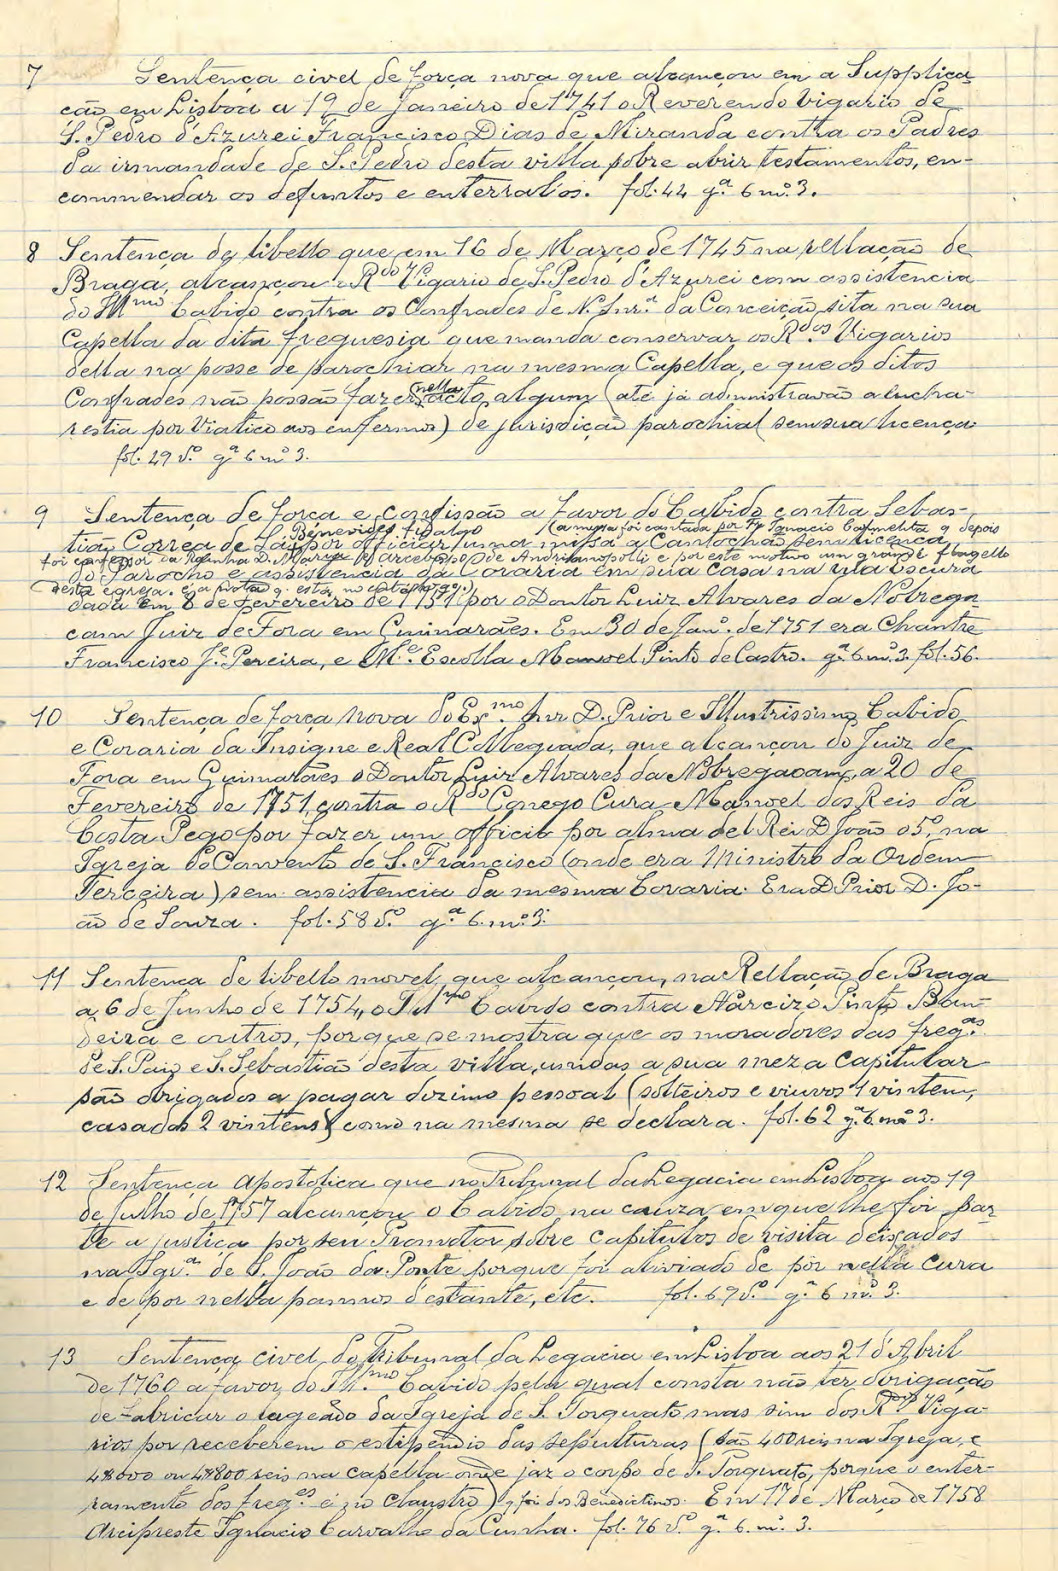 7 Sentença civel de força nova que alcançou em a Supplica-
ção em Lisboa a 19 de Janeiro de 1741 o Reverendo Vigario de
S. Pedro d'Azurei Francisco Dias de Miranda contra os Padres
da irmandade de S. Pedro desta villa sobre abrir testamentos, en-
commendar os defuntos e enterral'os. fol. 44 g.ª 6 m.º 3.
8 Sentença de libello que em 16 de Março de 1745 na rellação de
Braga, alcançou o R.do Vigario de S. Pedro d'Azurei com assistencia
do Ill.mo Cabido contra os Confrades de N. Snr.ª da Conceição, sita na sua
Capella da dita freguesia que manda conservar os R.dos Vigarios
della na posse de parochiar na mesma Capella, e que os ditos
Confrades não possão fazer nella acto algum (até já administravão a Eucha-
restia por Viatico aos enfermos) de jurisdição parochial sem sua licença
fol. 49 v.º g.ª 6 m.º 3.
9 Sentença de força e confissão a favor do Cabido contra Sebas-
Benevides fidalgo (a missa foi cantada por Fr. Ignacio Carmelita q depois
tião Correa de Sá por officiar uma missa a Cantochão sem licença
foi confessor da Rainha D. Maria e Arcebispo de Andrinopoli) e por este motivo um grande flagello
do Parocho e assistencia da Coraria em sua casa na rua escura
desta egreja. e a nota q. está no catalogo.)
dada em 8 de Fevereiro de 1751 por o Doutor Luiz Alvares da Nobrega
cam Juiz de Fora em Guimarães. Em 30 de Jan.º de 1751 era Chantre
Francisco J.e Pereira, e M.e Escolla Manoel Pinto de Castro. g.ª 6 m.º 3. fol. 56.
10 Sentença de força nova do Ex.mo Snr D. Prior e Illustrissimo Cabido
e Coraria da Insigne e Real Collegiada, que alcançou do Juiz de
Fora em Guimarães o Doutor Luiz Alvares da Nobregacam, a 20 de
Fevereiro de 1751, contra o R.do Conego Cura Manoel dos Reis da
Costa Pego por fazer um officio por alma del Rei D João o 5º, na
Igreja do Convento de S. Francisco (onde era Ministro da Ordem
Terceira) sem assistencia da mesma Coraria. Era D Prior D. Jo-
ão de Souza. fol. 58 v.º g.ª 6 m.º 3.
11 Sentença de libello movel, que alcançou, na Rellação de Braga
a 6 de Junho de 1754, o Ill.mo Cabido contra Narcizo Pinto Ban-
deira e outros, porque se mostra que os moradores das freg.as
de S. Paio e S. Sebastião desta villa, unidas a sua meza capitular
são obrigados a pagar dizimo pessoal (solteiros e viuvos 1 vintem,
casados 2 vintens) como na mesma se declara. fol. 62 g.ª 6 m.º 3.
12 Sentença Apostolica que no Tribunal da Legacia em Lisboa aos 19
de Julho de 1757 alcançou o Cabido, na cauza em que lhe foi par-
te a justiça por seu Promotor, sobre capitulos de visita deixados
na Igr.ª de S. João da Ponte porque foi aliviado de pôr nella cura
e de por nella pannos d'estante, etc. fol. 69 v.º g.ª 6 m.º 3.
13 Sentença civel do Tribunal da Legacia em Lisboa aos 21 d'Abril
de 1760 a favor do Ill.mo Cabido pela qual consta não ter obrigação
de fabricar o lageádo da Igreja de S. Torquato mas sim dos R.dos Viga-
rios por receberem o estipendio das sepulturas (são 400 reis na Igreja, e
4$000 ou 4$800 reis na capella onde jaz o corpo de S. Torquato, porque o enter-
ramento dos freg.es é no claustro) q foi dos Benedictinos. Em 17 de Março de 1758
Arcipreste Ignacio Carvalho da Cunha. fol. 76 v.º g.ª 6. m.º 3.